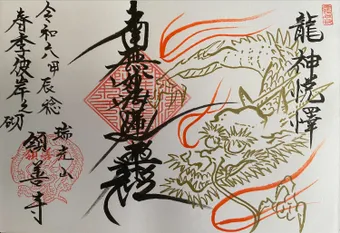 龍神
南無妙法蓮華経
令和六甲辰稔
春季彼岸之砌
瑞光山
領善寺